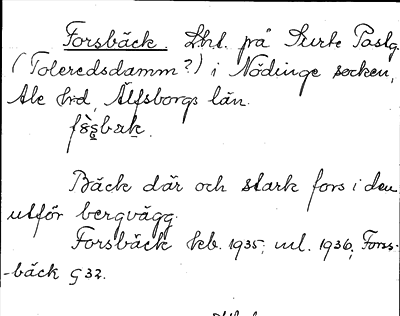 Forsbäck. Lht. på Surte Paslg.
(Toleredsdamm?) i Nödinge socken,
Ale hd, Älfsborgs län.
Bäck där och stark fors i den
utför bergvägg.
Forsbäck keb. 1935; ml. 1936; Fors-
-bäck G 32.